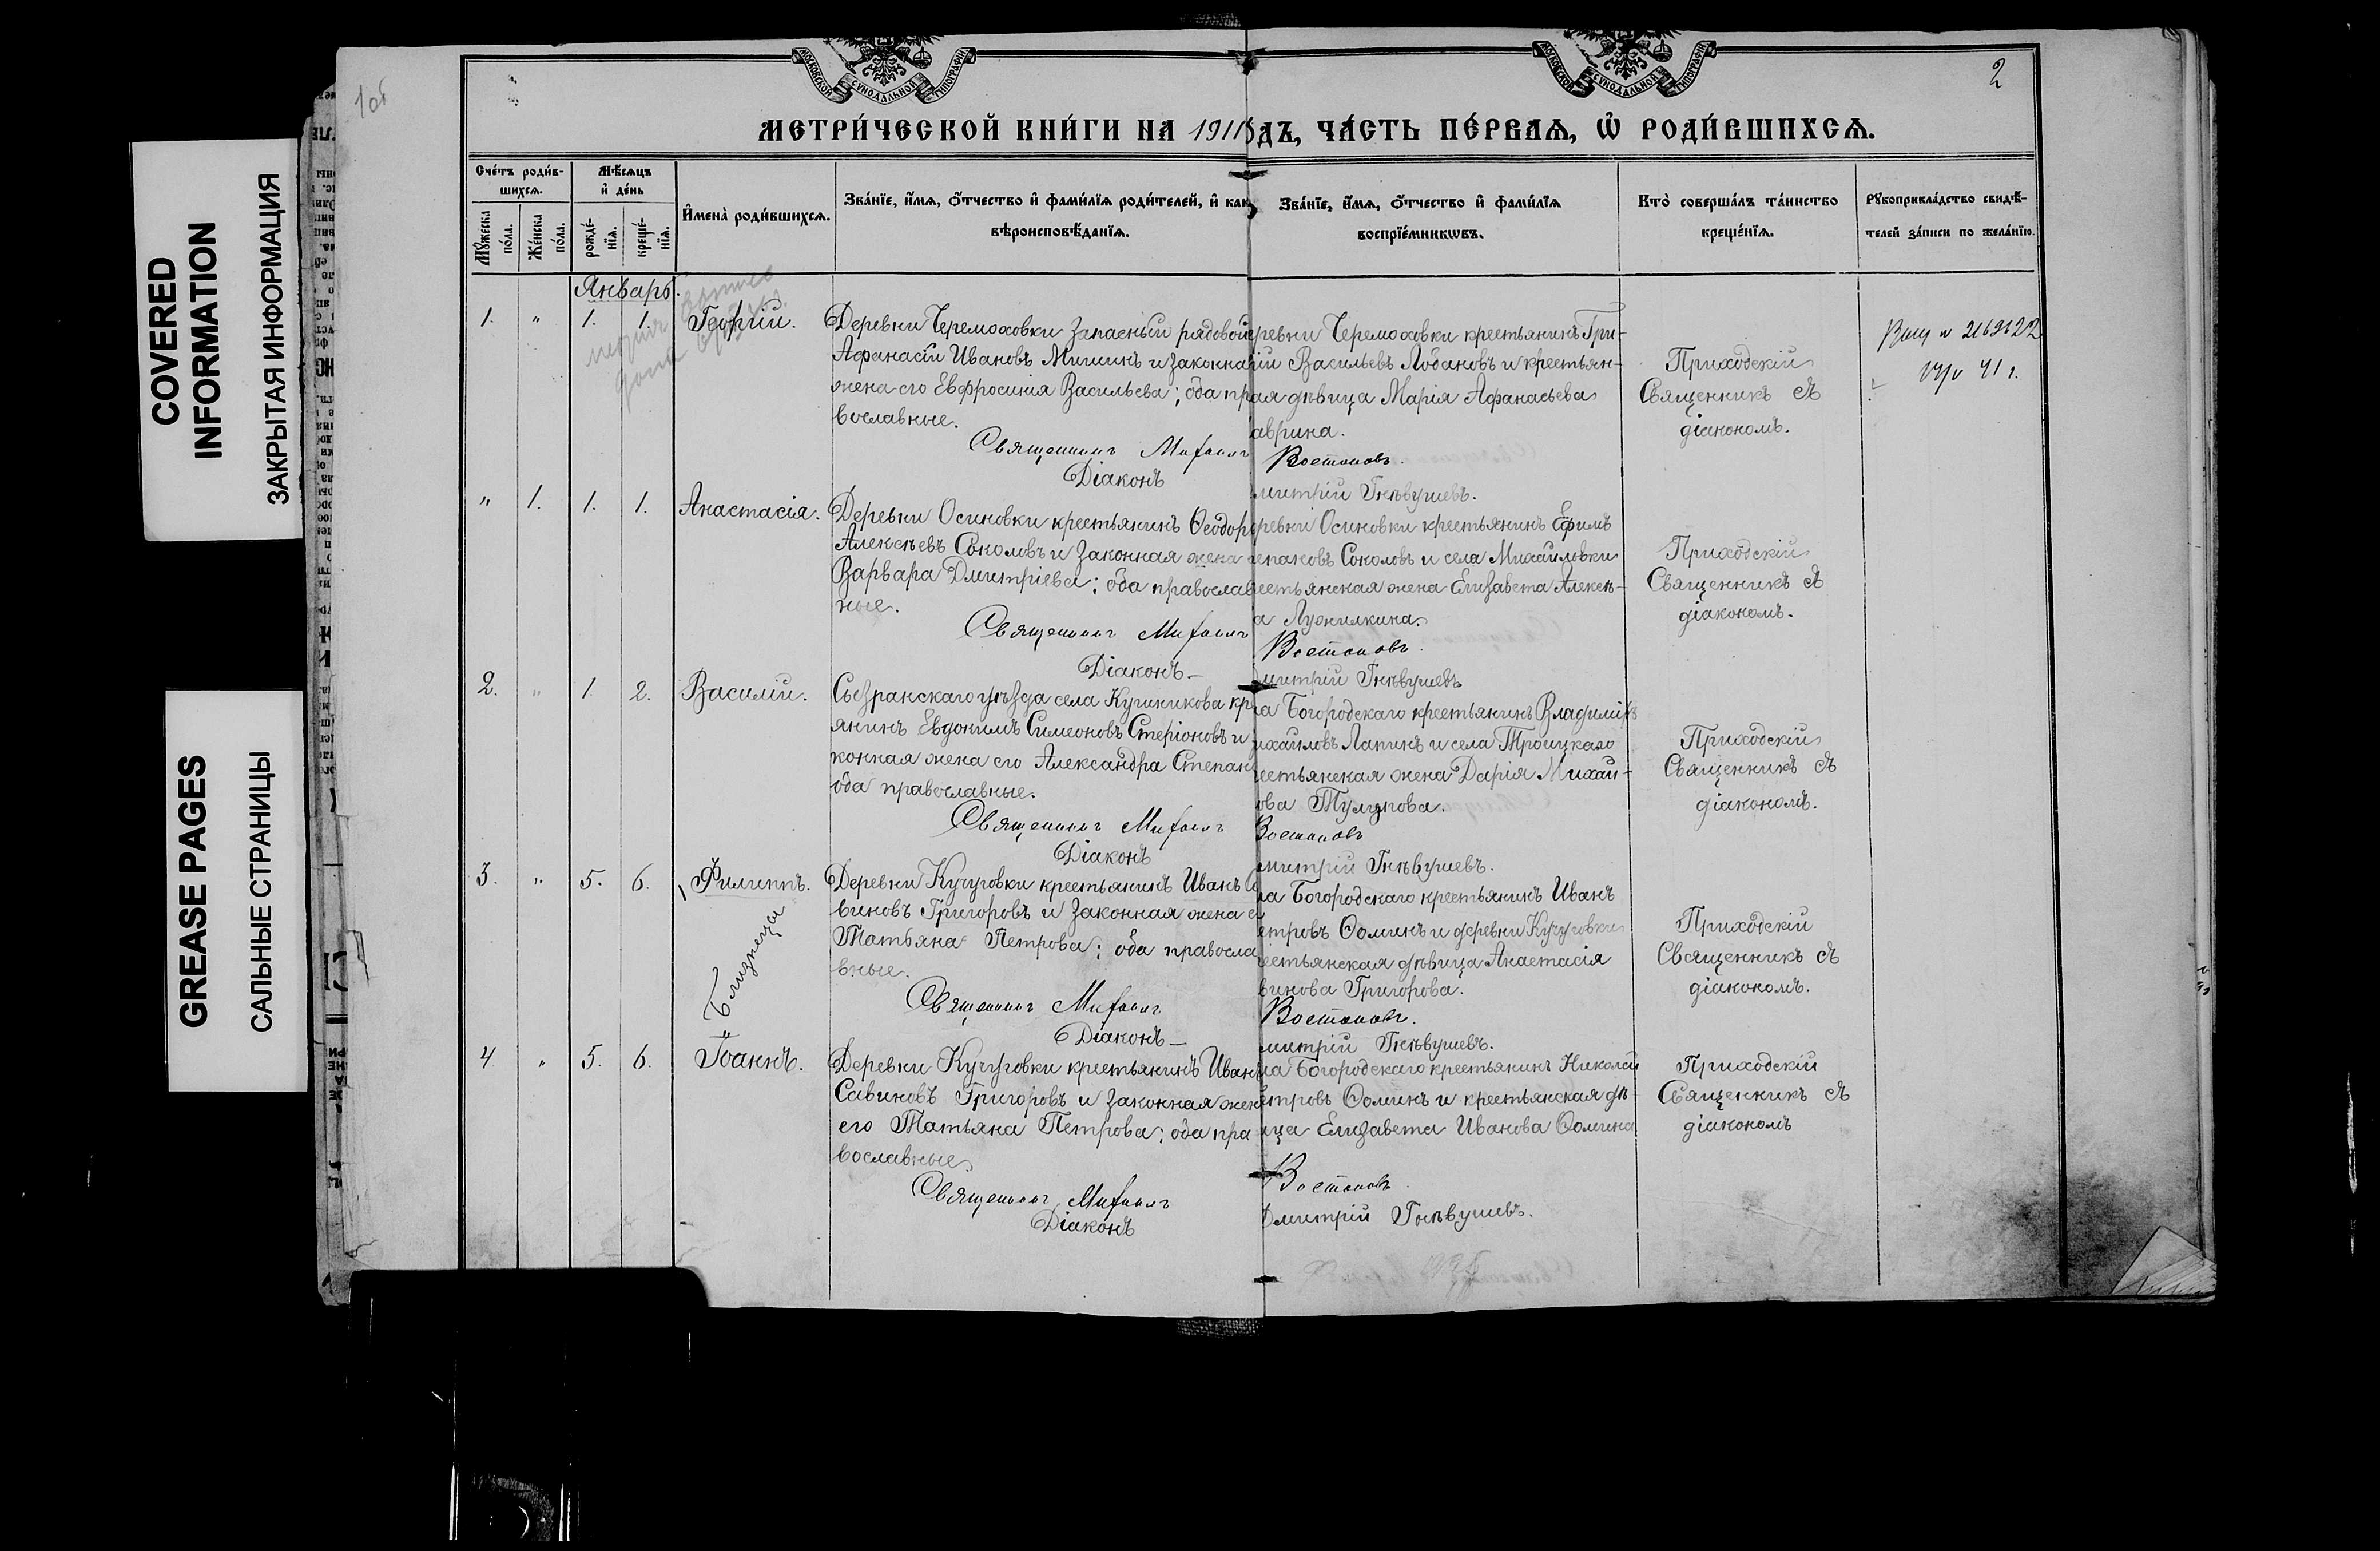 COVERED
INFORMATION
ЗАКРЫТАЯ ИНФОРМАЦИЯ
GREASE PAGES
САЛЬНЫЕ СТРАНИЦЫ
1об
2
МОСКОВСКОЙ СѴНОДАЛЬНОЙ ТИПОГРАФІИ
МОСКОВСКОЙ СѴНОДАЛЬНОЙ ТИПОГРАФІИ
МЕТРИ́ЧЕСКОЙ КНИ́ГИ НА 1911 дъ, ЧА́СТЬ ПЕ́РВАѦ, Ѡ҆ РОДИ́ВШИХСѦ.
Сче́тъ роди́в-
шихсѧ.
Мꙋ́жеска по́ла.
Же́нска по́ла.
Мѣ́сѧцъ
и҆ де́нь
рожде́-
нїѧ.
креще́-
нїѧ.
И҆мена̀ роди́вшихсѧ.
Зва́нїе, и҆́мѧ, ѻ҆́тчество и҆ фами́лїѧ роди́телей, и҆ как
вѣроисповѣ́данїѧ.
Зва́нїе, и҆́мѧ, ѻ҆́тчество и҆ фами́лїѧ
воспрїе́мникѡвъ.
Кто̀ соверша́лъ та́инство
креще́нїѧ.
Рꙋкоприкла́дство свидѣ́-
телей за́писи по жела́нїю.
Январь.
1. " 1. 1. Георгій.
Деревни Черемоховки запасный рядовой
Афанасій Ивановъ Мишинъ и законная
жена его Евфросинія Васильева; оба пра
вославные.
Священникъ Михаилъ
Діаконъ
ревни Черемоховки крестьянинъ Гри-
рій Васильевъ Лобановъ и крестьян-
ая дѣвица Марія Афанасьева
аврина.
Востоковъ.
митрій Гнѣвушевъ.
Приходскій
Священникъ съ
діакономъ.
2169622
41 г.
" 1. 1. 1. Анастасія.
Деревни Осиновки крестьянинъ Ѳеодоръ
Алексѣевъ Соколовъ и законная жена
Варвара Дмитріева; оба православ
ные.
Священникъ Михаилъ
Діаконъ
ревни Осиновки крестьянинъ Ефимъ
епановъ Соколовъ и села Михайловки
рестьянская жена Елизавета Алексѣ-
а Лужилкина.
Востоковъ.
митрій Гнѣвушевъ
Приходскій
Священникъ съ
діакономъ.
2. " 1. 2. Василій.
Сызранскаго уѣзда села Кушникова кр
янинъ Евдокимъ Симеоновъ Стеріоновъ и
конная жена его Александра Степан
оба православные.
Священникъ Михаилъ
Діаконъ
ла Богородскаго крестьянинъ Владиміръ
ихаиловъ Лапинъ и села Троицкаго
рестьянская жена Дарія Михаи-
ова Тулупова.
Востоковъ
митрій Гнѣвушевъ.
Приходскій
Священникъ съ
діакономъ.
3. " 5. 6. Филиппъ.
Близнецы
Деревни Кучуговки крестьянинъ Иванъ С
виновъ Григоровъ и законная жена е
Татьяна Петрова; оба правосла
вные.
Священникъ Михаилъ
Діаконъ
ла Богородскаго крестьянинъ Иванъ
етровъ Ѳоминъ и деревни Кучуговки
рестьянская дѣвица Анастасія
винова Григорова.
Востоковъ.
митрій Гнѣвушевъ.
Приходскій
Священникъ съ
діакономъ.
4. " 5. 6. Іоаннъ.
Деревни Кучуговки крестьянинъ Иванъ
Савиновъ Григоровъ и законная жен
его Татьяна Петрова; оба пра
вославные
Священникъ Михаилъ
Діаконъ
ла Богородскаго крестьянинъ Николай
етровъ Ѳоминъ и крестьянская дѣ-
ица Елизавета Иванова Ѳомина
Востоковъ.
Дмитрій Гнѣвушевъ.
Приходскій
Священникъ съ
діакономъ